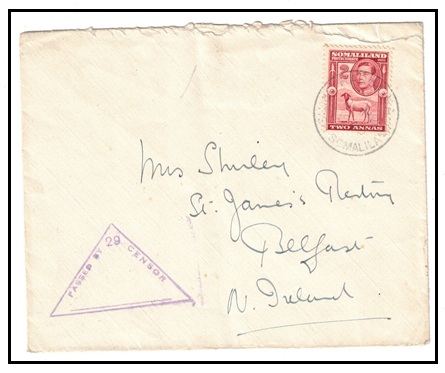 SOMALILAND
PROTECTORATE
2
TWO ANNAS
SOMALILA
Mrs Shirley
St. James's Rectory
Belfast
N. Ireland.
PASSED BY 29 CENSOR